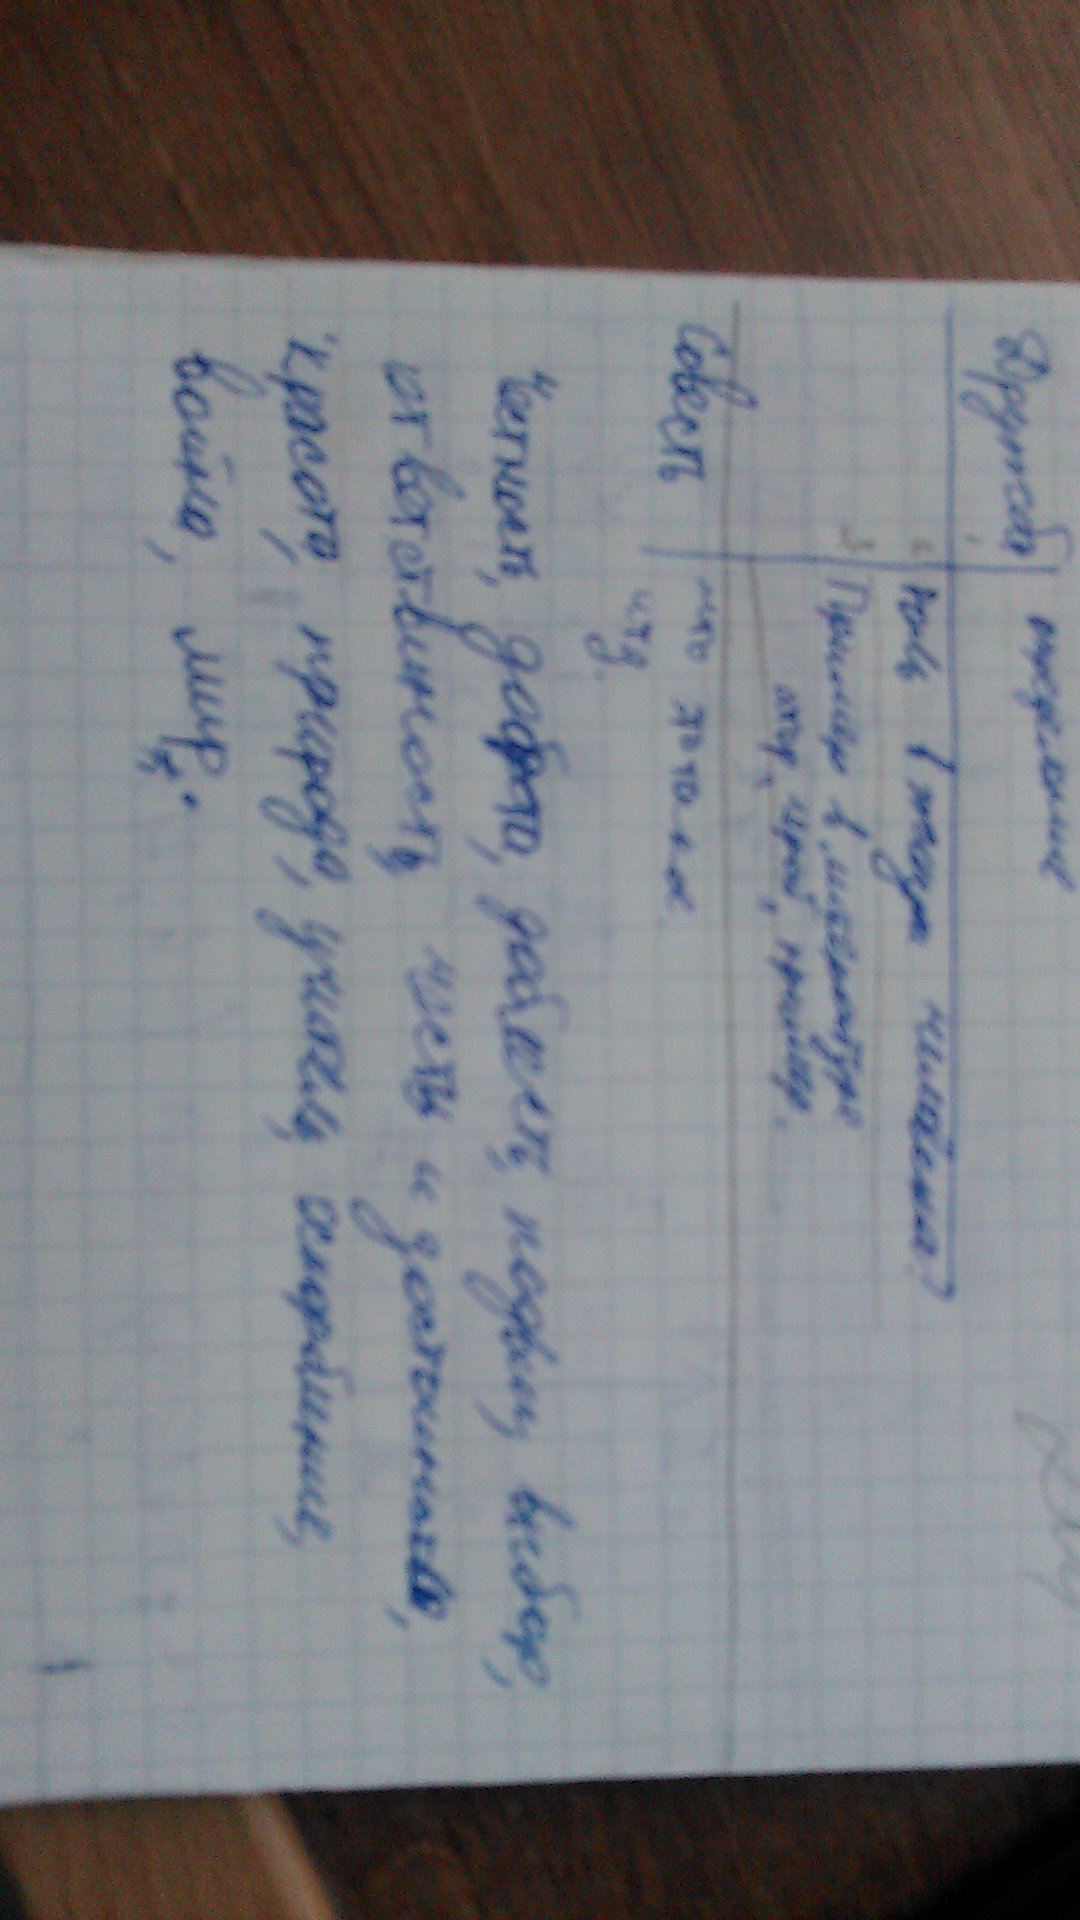 Дружба определение
2. Роль в жизни человека?
3 Примеры в литературе
Совесть что это такое
и т.д.
Честность, доброта, доблесть, подвиг, выбор,
ответственность, честь и достоинство,
красота, природа, унизить, оскорбление,
война, мир.